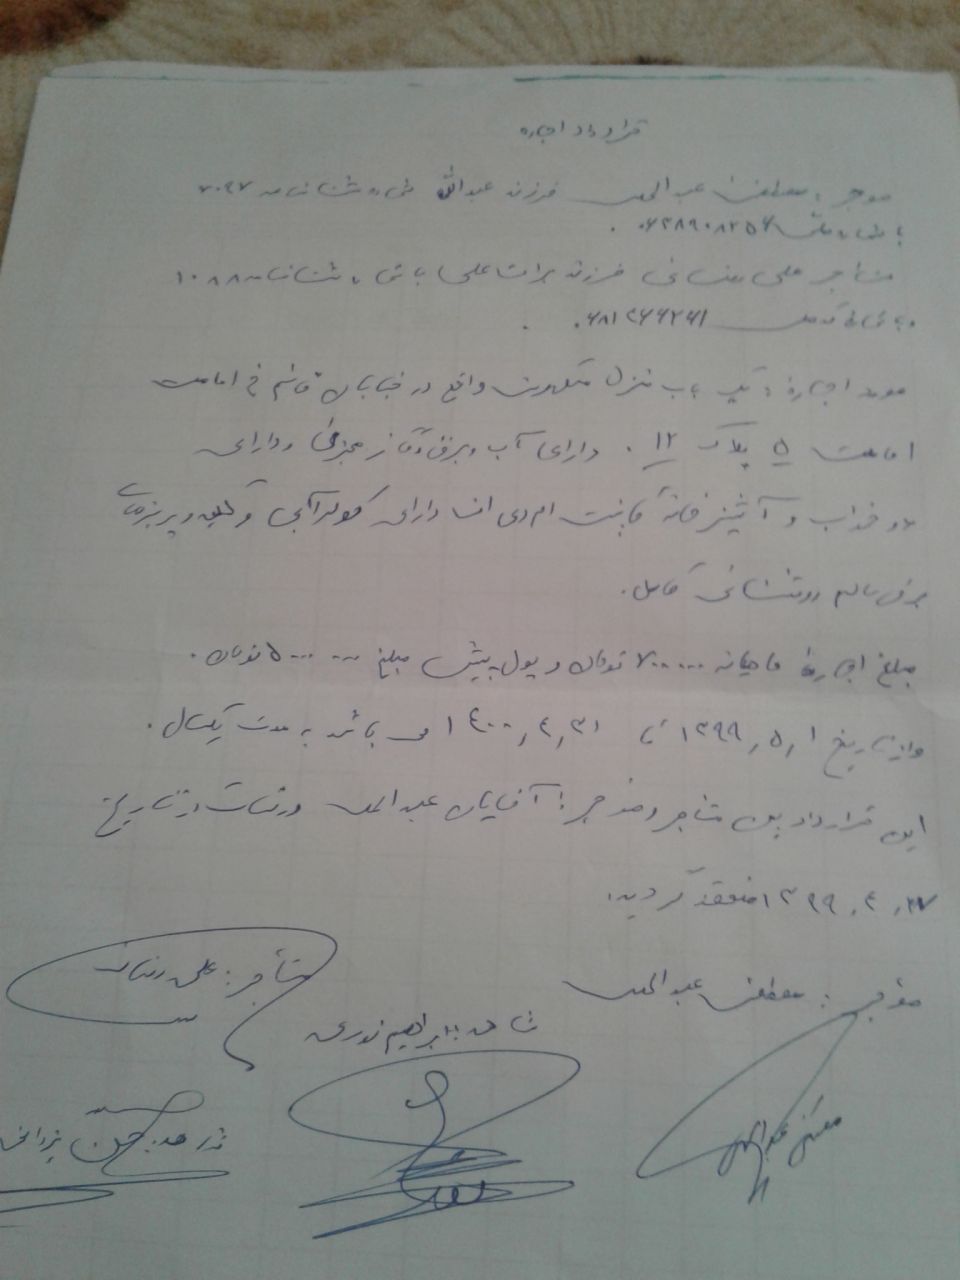 قرارداد اجاره
موجر: مصطفی عبدالهی فرزند عبدالله شماره شناسنامه ۷۰۹۷
با شماره ملی
مستاجر علی رمضانی فرزند براتعلی با شماره شناسنامه ۱۰۸۸
و با شماره کد ملی
مورد اجاره: یک باب منزل مسکونی واقع در خیابان قائم خ امامت
امامت ۵ پلاک ۱۲. دارای آب و برق و گاز مجزا و دارای
دو خواب و آشپزخانه کابینت ام دی اف دارای کولر آبی و کلید و پریزهای
برق سالم روشنائی کامل.
مبلغ اجاره ماهیانه ۷۰۰۰۰۰ تومان و پول پیش مبلغ ۵۰۰۰۰۰۰ تومان.
و از تاریخ ۱۳۹۹٫۵٫۱ تا ۱۴۰۰٫۴٫۳۱ می باشد به مدت یکسال.
این قرارداد بین مستاجر و موجر: آقایان عبدالهی در تاریخ
۱۳۹۹٫۴٫۲۷ منعقد گردید.
موجر: مصطفی عبدالهی
مستأجر: علی رمضانی
شاهد: ابراهیم نوری
شاهد: حسن یزدانی
مصطفی عبدالهی